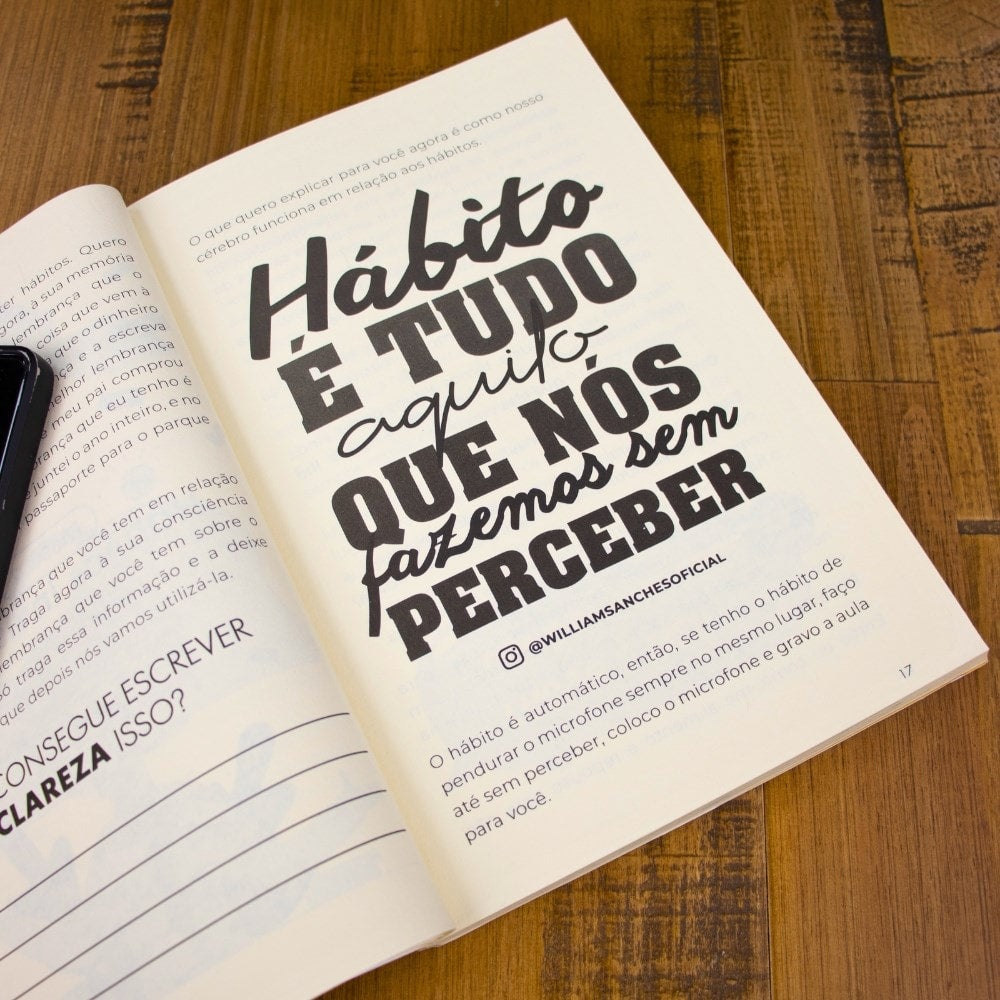 ter hábitos. Quero
agora, à sua memória
lembrança que o
coisa que vem à
que o dinheiro
e a escreva
melhor lembrança
meu pai comprou
que eu tenho é
juntei o ano inteiro, e no
passaporte para o parque
que você tem em relação
Traga agora à sua consciência
lembrança que você tem sobre o
só traga essa informação e a deixe
que depois nós vamos utilizá-la.
CONSEGUE ESCREVER
CLAREZA ISSO?
O que quero explicar para você agora é como nosso
cérebro funciona em relação aos hábitos.
Hábito
É TUDO
aquilo
QUE NÓS
fazemos sem
PERCEBER
@WILLIAMSANCHESOFICIAL
O hábito é automático, então, se tenho o hábito de
pendurar o microfone sempre no mesmo lugar, faço
até sem perceber, coloco o microfone e gravo a aula
para você.
17